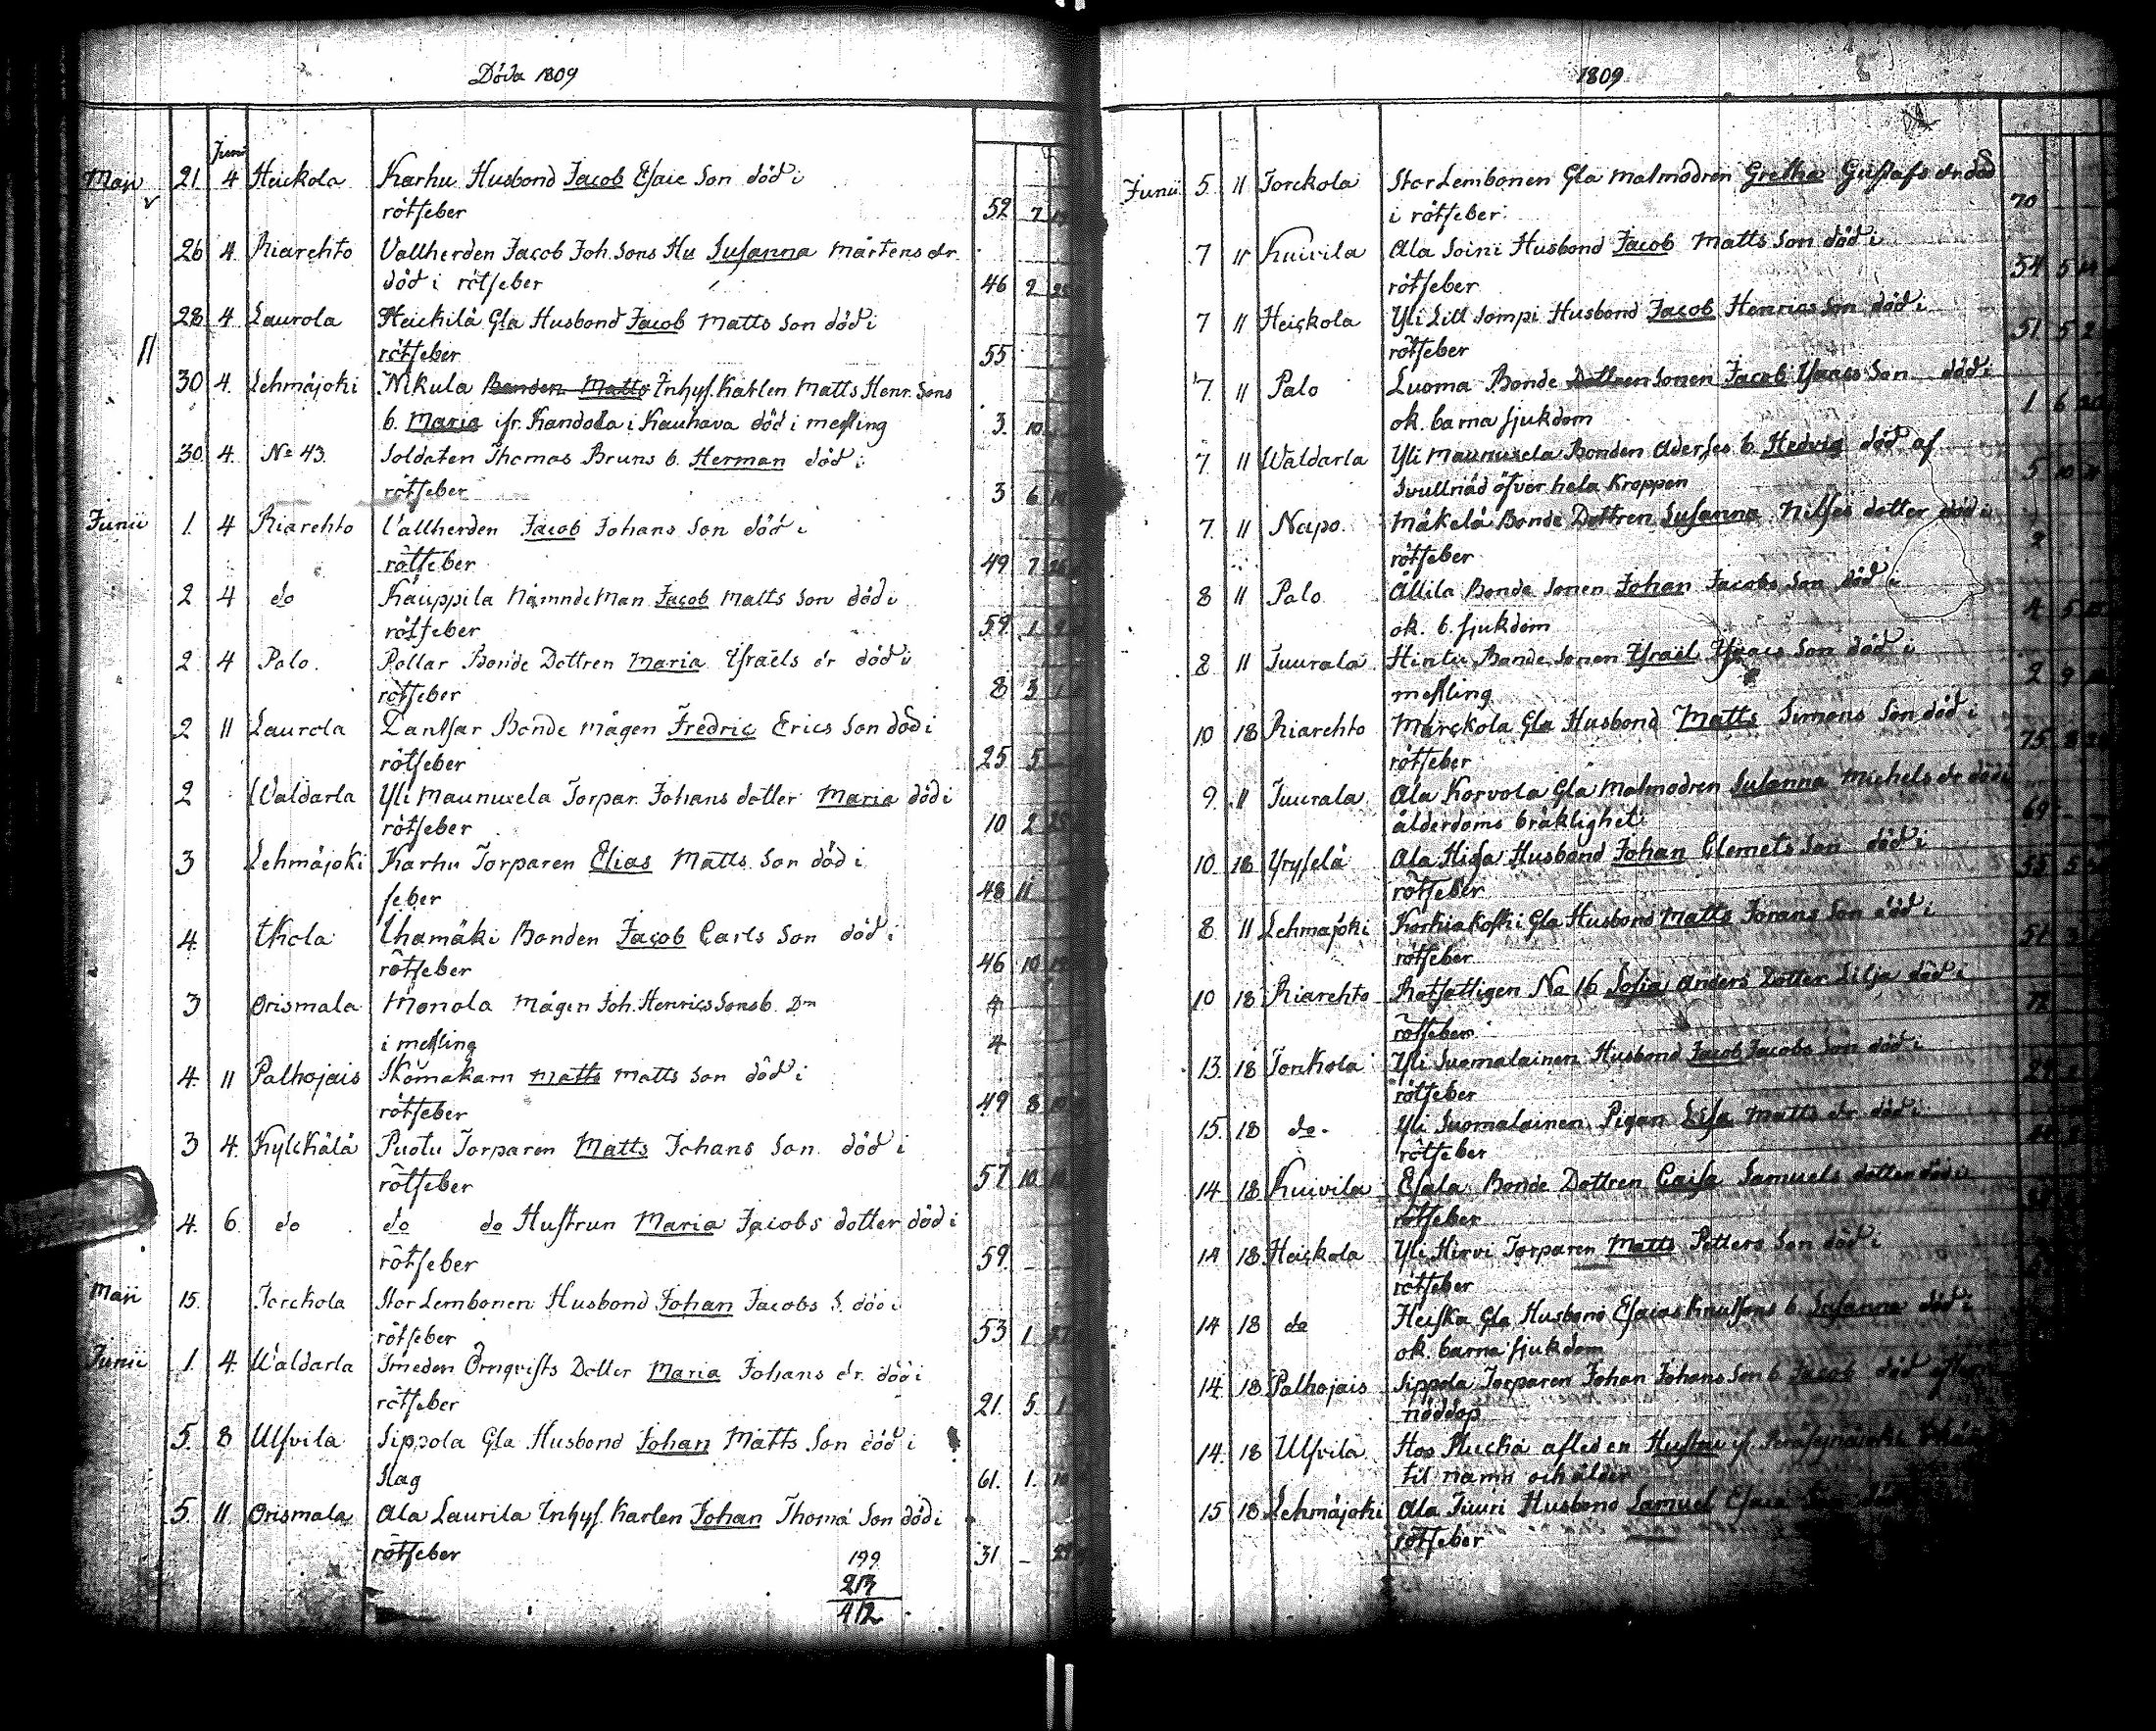 Döda 1809
Junii
Maji 21 4 Heickola Karhu Husbond Jacob Esaie Son död i
rötfeber 52 7
26 4 Riarehto Vallherden Jacob Joh. Sons Hu Susanna Mårtens dr
död i rötfeber 46 2
28 4 Laurola Heickilä Gla Husbond Jacob Matts Son död i
rötfeber 55
30 4. Lehmäjoki Nikula Bonden Matts Inhys. Karlen Matts Henr. Sons
b. Maria ifr. Kandola i Kauhava död i messling 3. 10
30. 4. No 43. Soldaten Thomas Bruns b. Herman död i
rötfeber 3 6
Junii 1. 4 Riarehto Vallherden Jacob Johans Son död i
rötfeber 49 7
2 4 do Käuppila Nämndeman Jacob Matts Son död i
rötfeber 59 1
2 4 Palo. Pollar Bonde Dottren Maria Israëls dr död i
rötfeber 8 3
2 11 Laurola Lantsar Bonde mågen Fredric Erics Son död i
rötfeber 25 5
2 Waldarla Yli Maunuxela Torpar Johans dotter Maria död i
rötfeber 10 2 25
3 Lehmäjoki Karhu Torparen Elias Matts Son död i
feber 48 11
4. Ikola Uhamäki Bonden Jacob Carls Son död i
rötfeber 46 10
3 Orismala Monola Mågen Joh. Henrics Sons b. Dn 4
i messling 4
4. 11 Palhojais Skomakarn Matts Matts Son död i
rötfeber 49 8
3 4. Kylckälä Puotu Torparen Matts Johans Son död i
rötfeber 57 10
4. 6. do do do Hustrun Maria Jacobs dotter död i
rötfeber 59.
Maji 15. Torckola Stor Lembonen Husbond Johan Jacobs S. död i
rötfeber 53 1 27
Junii 1. 4 Waldarla Smeden Örnqvists Dotter Maria Johans dr. död i
rötfeber 21. 5. 1
5. 8 Ulfvila Sippola Gla Husbond Johan Matts Son död i
Slag 61. 1. 10
5. 11 Orismala Ala Laurila Inhys Karlen Johan Thomä Son död i
rötfeber 31 – 27
199
213
412
1809
Junii 5 11 Torckola Stor Lembonen Gla Malmodren Gretha Gustafs dr död
i rötfeber 70
7 11 Kuivila Ala Soini Husbond Jacob Matts Son död i
rötfeber 54 5
7 11 Heickola Yli Lill Sompi Husbond Jacob Henrics Son död i
rötfeber 51 5 2
7 11 Palo Luoma Bonde Dottren Sonen Jacob Isaacs Son död i
ok. barna sjukdom 1 6 20
7. 11 Waldarla Yli Maunuxela Bonden Aderses b. Hedvig död af
Svullnad öfver hela Kroppen 5 10
7. 11 Napo. Mäkelä Bonde Dottren Susanna Nilses dotter död i
rötfeber 2
8 11 Palo Ällila Bonde Sonen Johan Jacobs Son död i
ok. b. sjukdom 4 5
8 11 Juurala Hintu Bonde Sonen Israël Isaacs Son död i
messling 2 9
10 18 Riarehto Märckola Gla Husbond Matts Simons Son död i
rötfeber 75 8
9. 11 Juurala Ala Korvola Gla Malmodren Susanna Michels dr död i
ålderdoms bräklighet 69
10 18 Yryselä Ala Hisa Husbond Johan Clemets Son död i
rötfeber 55 5
8 11 Lehmajoki Korkiakoski Gla Husbond Matts Jorans Son död i
rötfeber 51 3
10 18 Riarehto Rotfattigen No 16 Sofia Anders Dotter Lilja död i
rötfeber
13. 18 Torckola Yli Suomalainen Husbond Jacob Jacobs Son död i
rötfeber
15. 18 do. Yli Suomalainen Pigan Lisa Matts dr död i
rötfeber
14 18 Kuivila Esala Bonde Dottren Caisa Samuels dotter död i
rötfeber
14 18 Heickola Yli Hirvi Torparen Matts Petters Son död i
rötfeber
14 18 do Heiska Gla Husbond Esaias Knutsons b. Susanna död i
ok. barna sjukdom
14 18 Palhojais Sippola Torparen Johan Johans Son b. Jacob död efter
nöddop
14. 18 Ulfvila Hos Plucka afled en Hustru
til namn och ålder
15 18 Lehmäjoki Ala Juuri Husbond Samuel Esaiæ
rötfeber